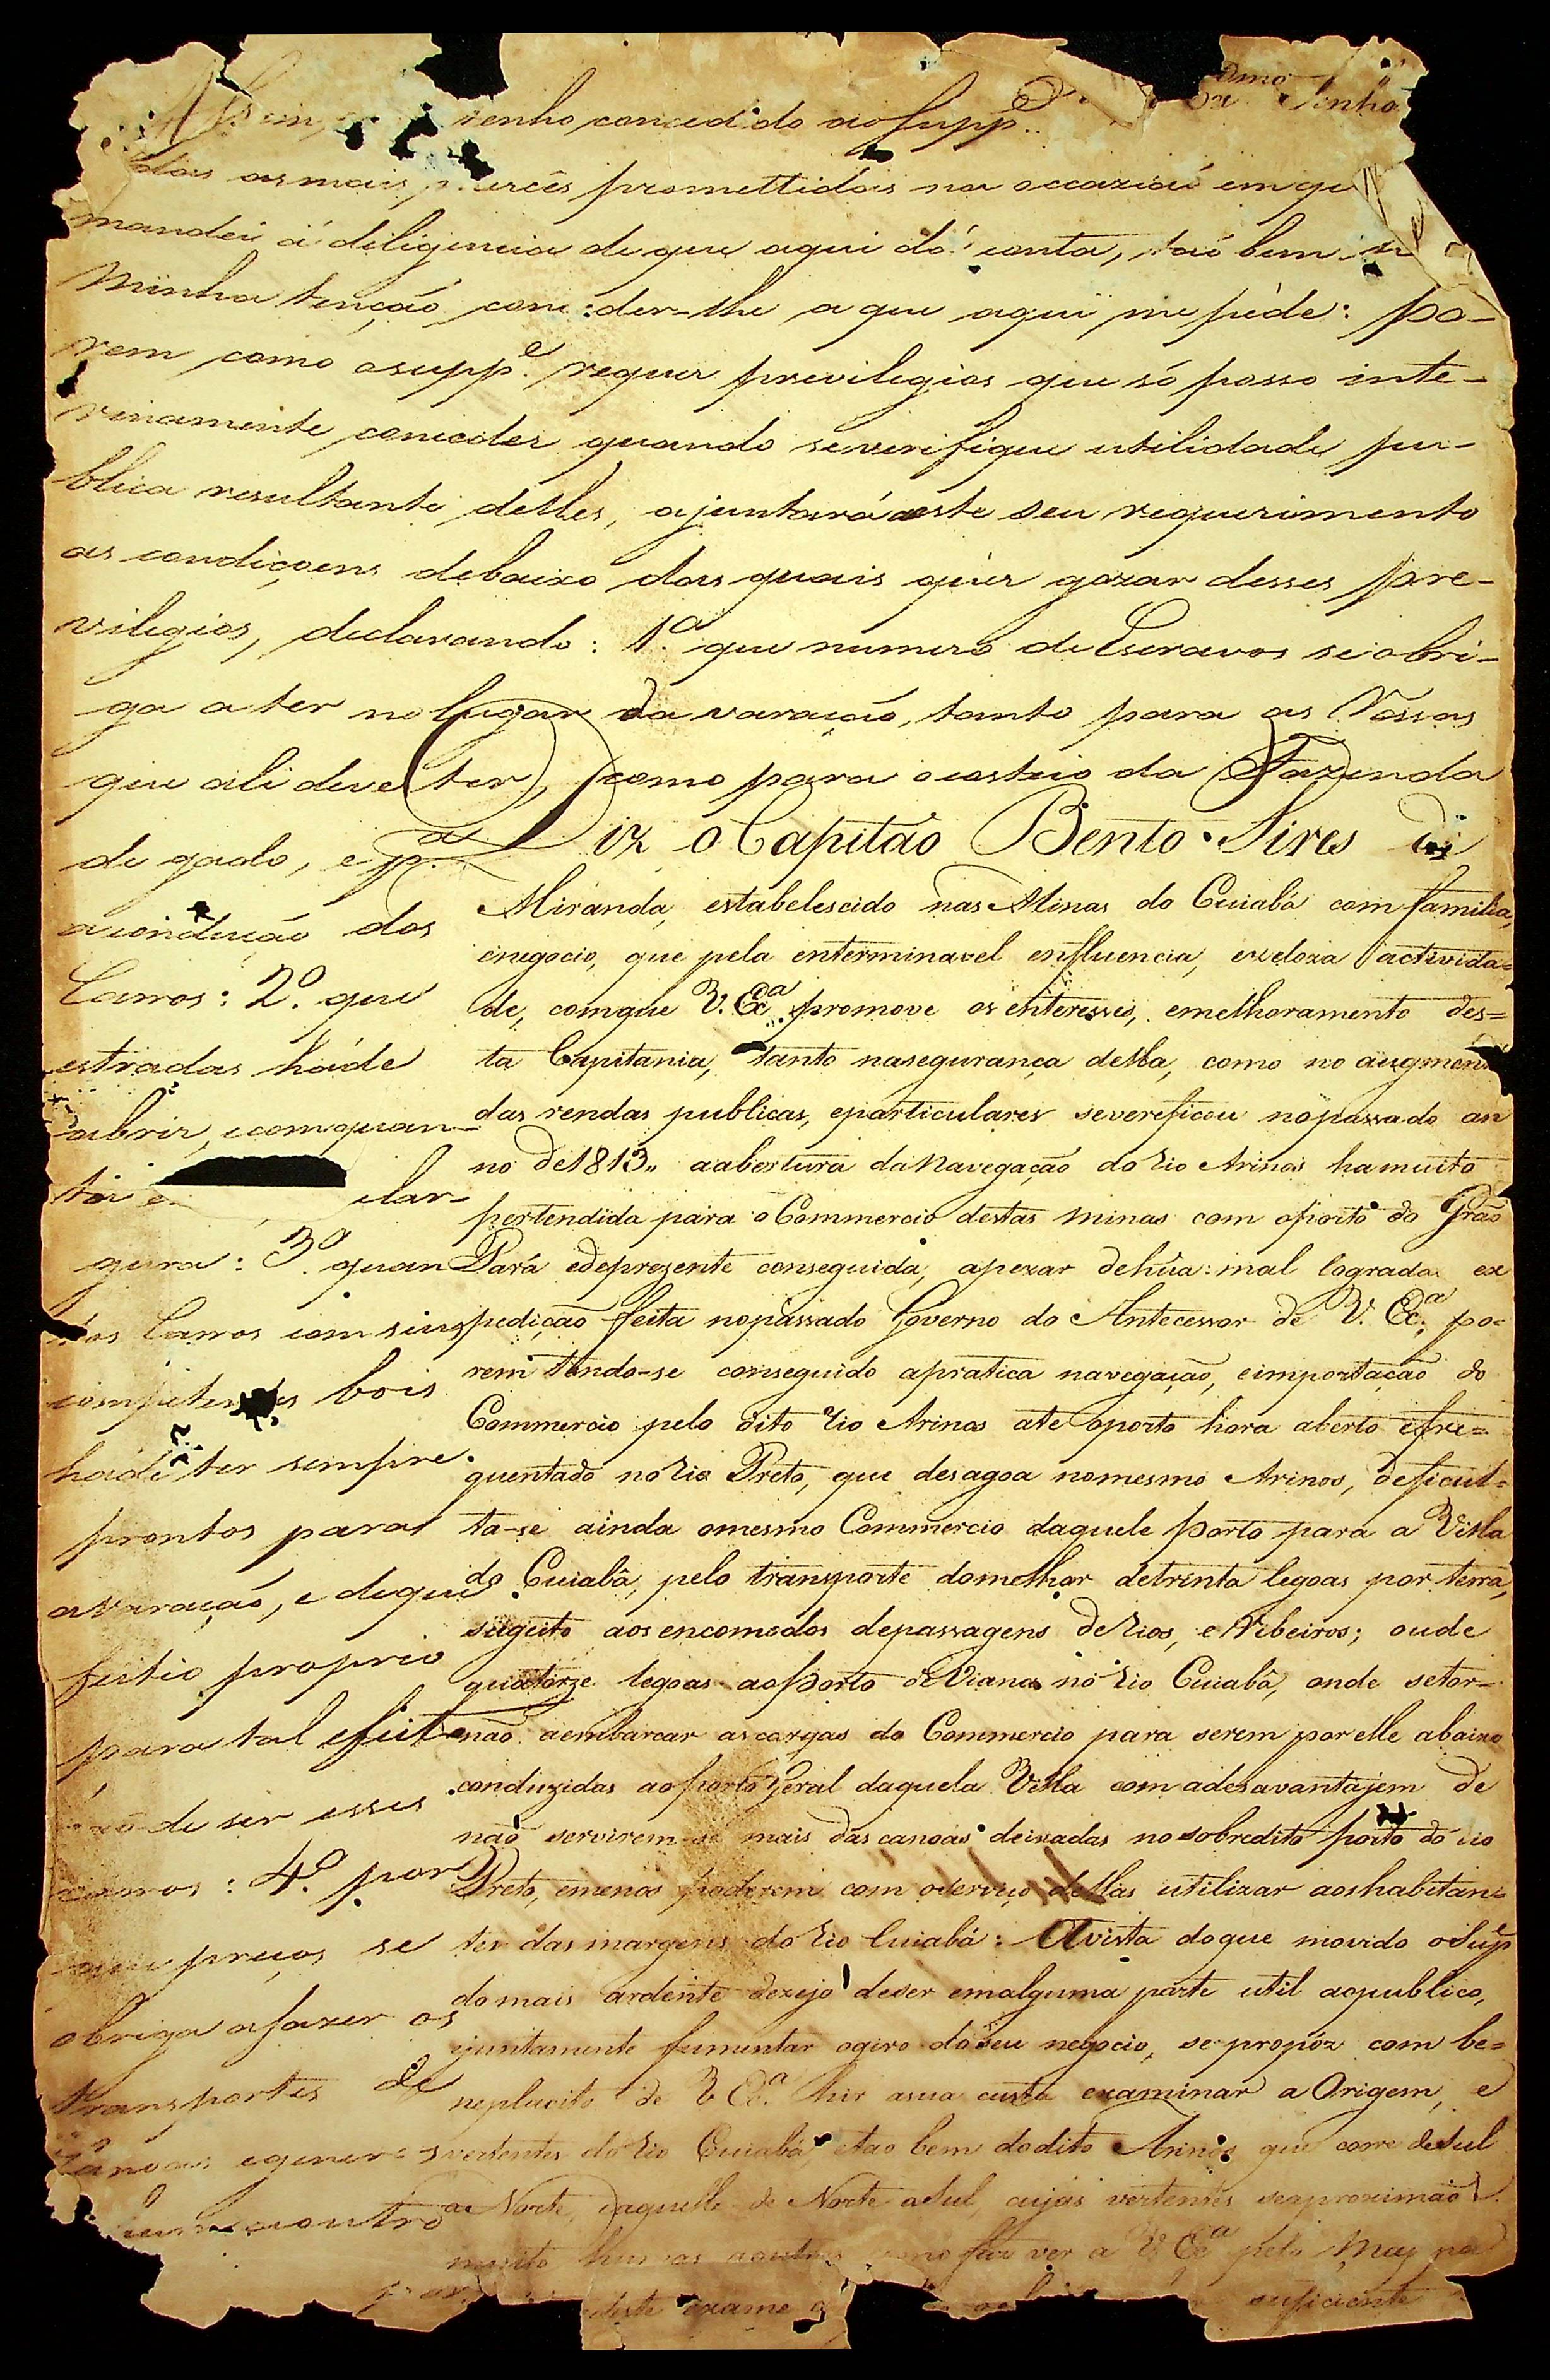 Ex.mo Senho
Assim, tenho concedido ao Supp.e
das as mais mercês promettidas na occaziaõ em que
mandei á diligencia de que aqui dá conta, taõ bem
Minha tenção conceder-lhe a que aqui me péde: po-
rem como o supp.e requer previlegios que só posso inte-
rinamente conceder quando se verifique utilidade pu-
blica resultante delles, ajuntará a este seu requerimento
as condiçoens debaixo das quais quér gozar desses pre-
vilegios, declarando: 1.º que numero de Escravos se obri-
ga a ter no lugar da varação, tanto para as Rossas
que ali deve ter, como para o costeio da Fazenda
de gado, e p.a
a condução dos
Carros: 2º. que
estradas háde
abrir, e com quan-
ta e lar-
gura: 3º. quan
tos Carros com seus
competentes bois
háde ter sempre
prontos para
a varação, e de que
feitio proprio
para tal efeito
de ser esses
carros: 4º. por
que preços se
obriga a fazer os
transportes de
canoas e generos
outro
Diz o Capitão Bento Pires de
Miranda, estabelescido nas Minas do Cuiabá com familia,
e negocio, que pela enterminavel enfluencia, e zeloza activida=
de, com que V. Ex.a promove os enteresses, e melhoramento des=
ta Capitania, tanto na segurança della, como no augmen
das rendas publicas, e particulares se vereficou no passado an
no de 1813,, a abertura da Navegação do Rio Arinos ha muito
pertendida para o Commercio destas Minas com o porto do Grão
Pará e de prezente conseguida, apezar de hũa mal lograda ex
pedição feita no passado Governo do Antecessor de V. Ex.a, po=
rem tendo-se conseguido a pratica navegação, e importação do
Commercio pelo dito Rio Arinos ate o porto hora aberto e fre=
quentado no Rio Preto, que desagoa no mesmo Arinos, deficul=
ta-se ainda o mesmo Commercio daquele Porto para a Villa
do Cuiabá, pelo transporte do melhor de trinta legoas por terra,
sugeito aos encomodos de passagens de Rios, e Ribeiros; ou de
quatorze legoas ao Porto de Viana no Rio Cuiabá, onde se tor-
não a embarcar as cargas do Commercio para serem por elle abaixo
conduzidas ao Porto Geral daquela Villa com a desavantajem de
não servirem-se mais das canoas deixadas no sobredito porto do Rio
Preto, e menos poderem com o serviço dellas utilizar aos habitan=
tes das margens do Rio Cuiabá: A vista do que movido o Sup.e
do mais ardente dezejo de ser em alguma parte util ao publico,
e juntamente fumentar o giro do seu negocio, se propóz com be=
neplacito de V. Ex.a hir a sua custa examinar a Origem, e
vertentes do Rio Cuiabá e tao bem do dito Arinos que corre de Sul
a Norte, daquelle de Norte a Sul, cujas vertentes se aproximão
muito humas a outras como fáz ver a V. Ex.a pelo Mapa
deste exame suficiente